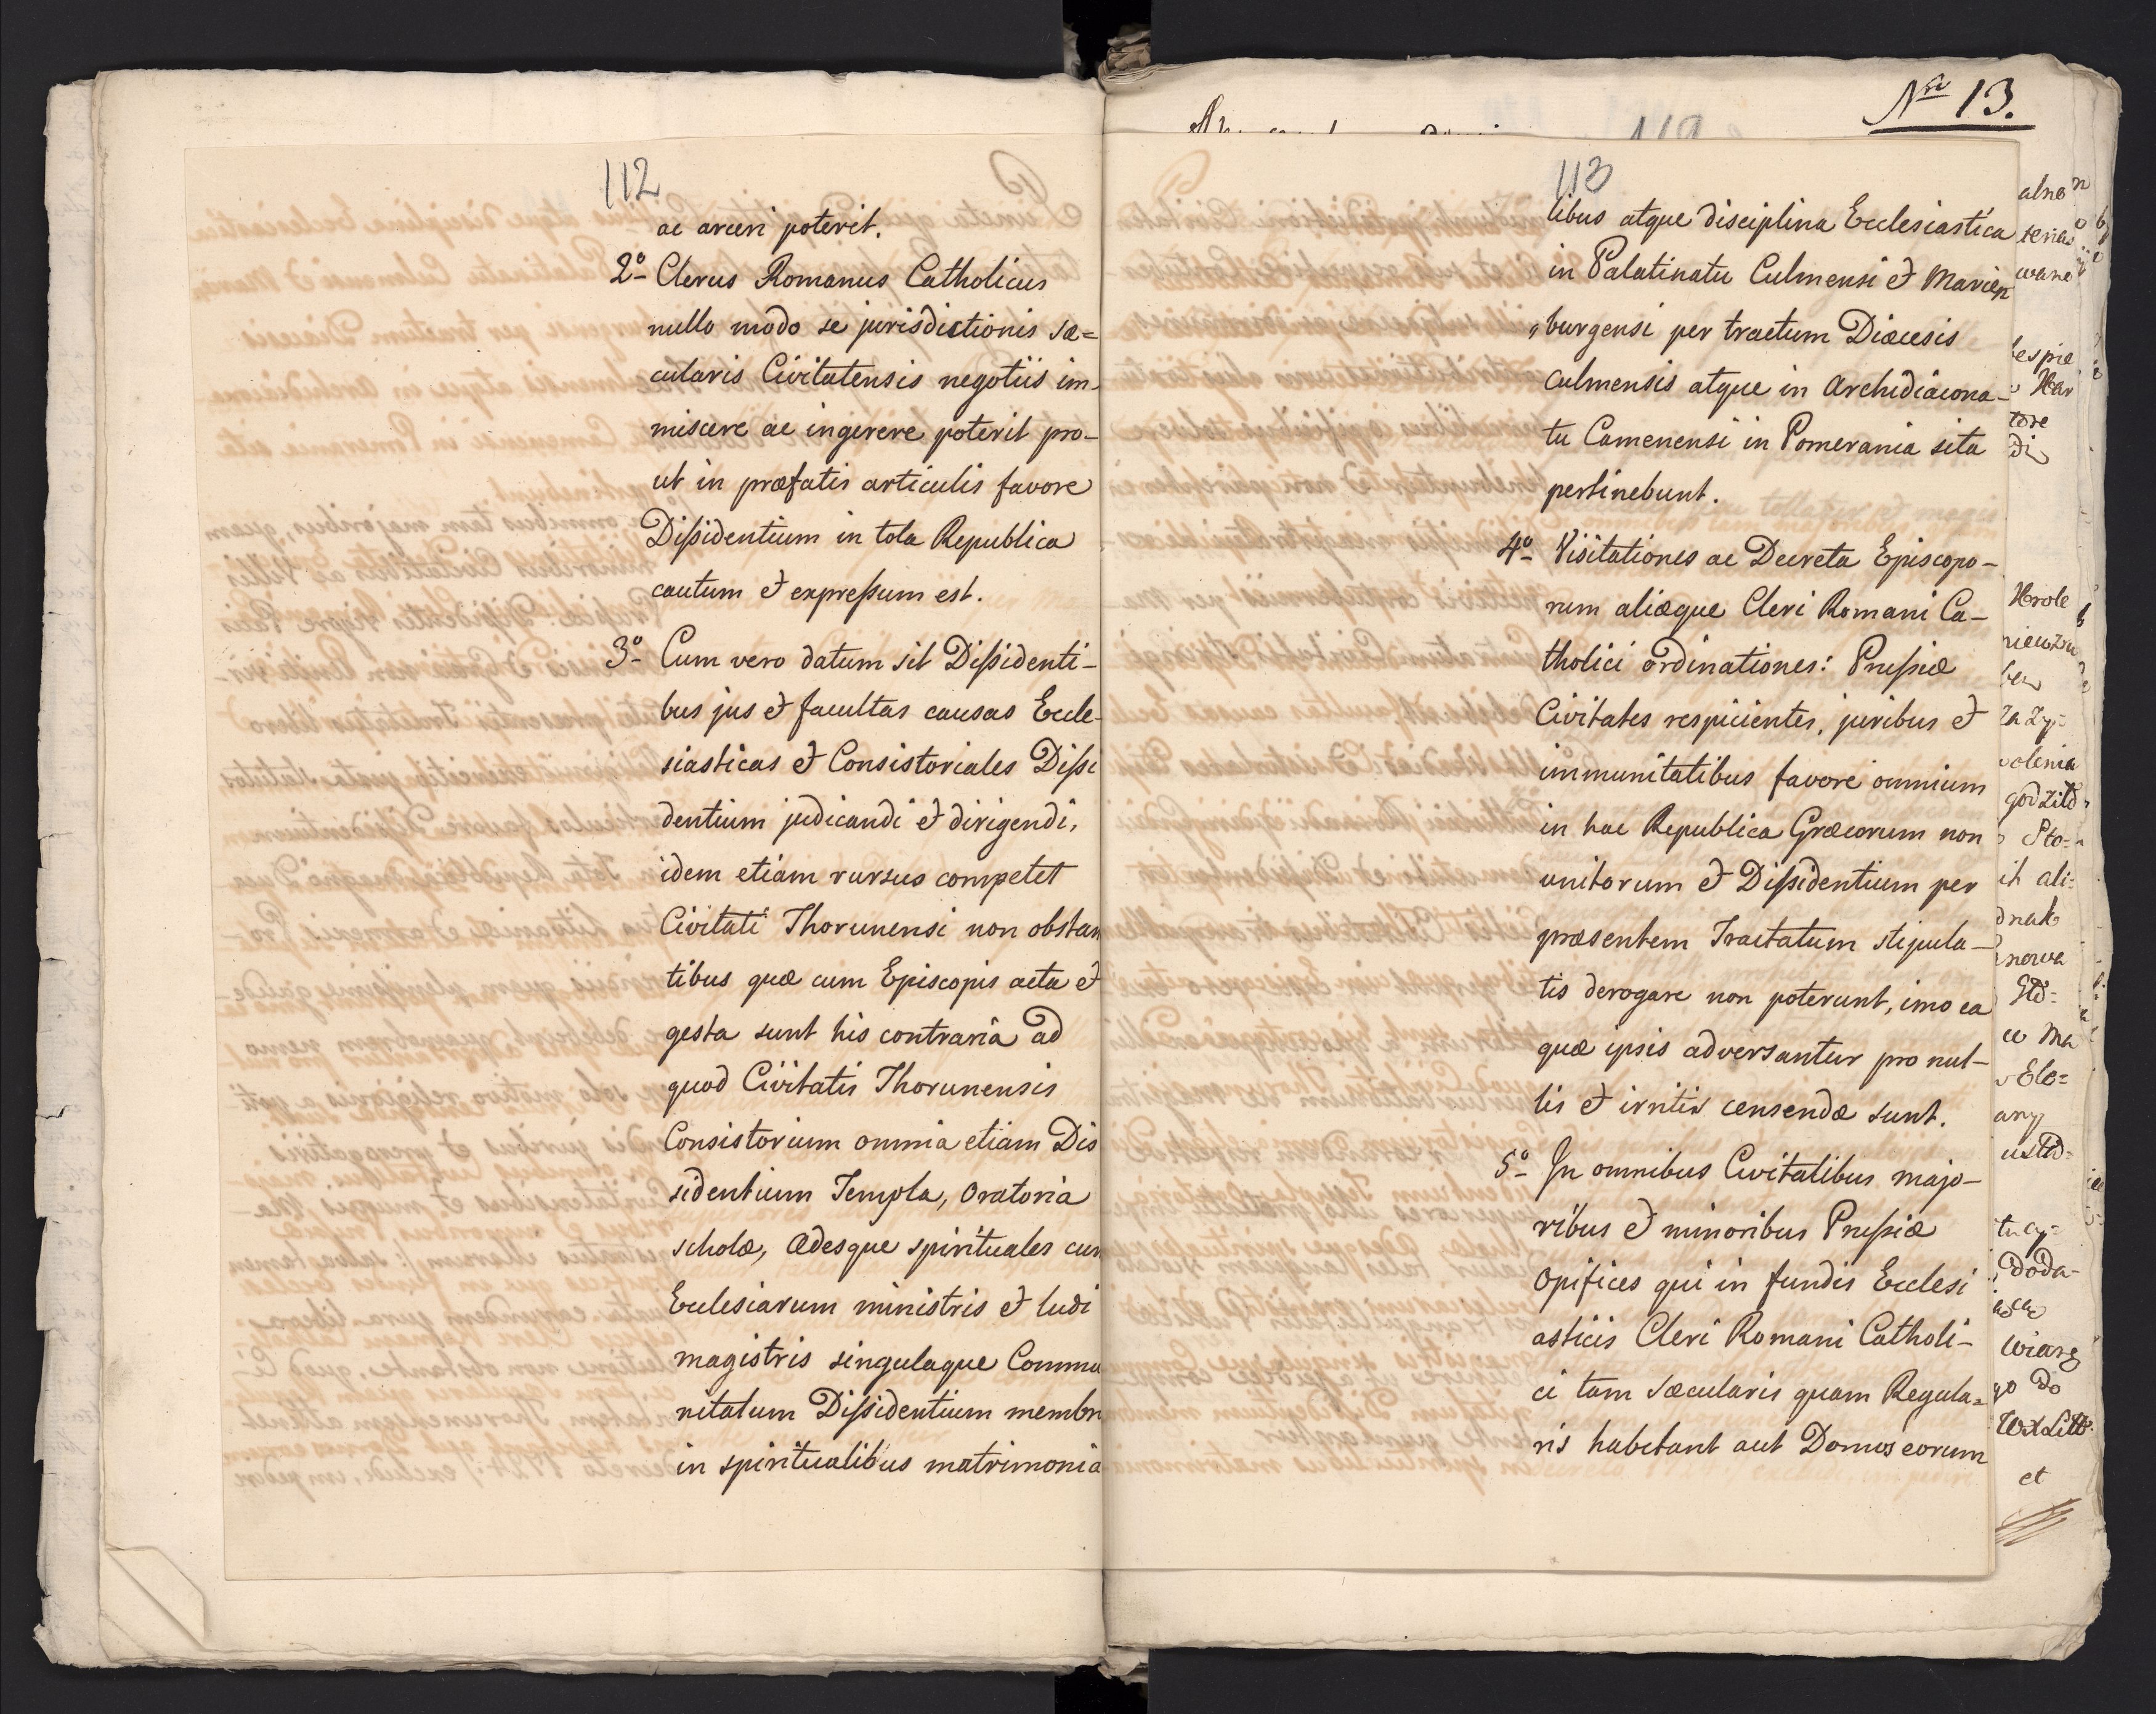 112
ac arceri poterit.
2o Clerus Romanus Catholicus
nullo modo se jurisdictionis sæ=
cularis Civitatensis negotiis im-
miscere ac ingerere poterit pro-
ut in præfatis articulis favore
Dissidentium in tota Republica
cautum et expressum est.
3o Cum vero datum sit Dissidenti-
bus jus et facultas causas Eccle-
siasticas et Consistoriales Dissi
dentium judicandi et dirigendi,
idem etiam rursus competet
Civitati Thorunensi non obstan
tibus quæ cum Episcopis acta et
gesta sunt his contraria ad
quod Civitatis Thorunensis
Consistorium omnia etiam Dis
sidentium Templa, Oratoria
scholæ, Ædesque spirituales cum
Ecclesiarum ministris et ludi
magistris singulaque Commu
nitatum Dissidentium membr
in spiritualibus matrimonia
Nro 13.
113
libus atque disciplina Ecclesiastica
in Palatinatu Culmensi et Marien
burgensi per tractum Diæcesis
Culmensis atque in Archidiacona-
tu Camenensi in Pomerania sita
pertinebunt.
4o Visitationes ac Decreta Episcopo-
rum aliæque Cleri Romani Ca-
tholici ordinationes: Prussiæ
Civitates respicientes, juribus et
immunitatibus favore omnium
in hac Republica Græcorum non
unitorum et Dissidentium per
præsentem Tractatum stipula-
tis derogare non poterunt, imo ea
quæ ipsis adversantur pro nul-
lis et irritis censendæ sunt.
5o In omnibus Civitatibus majo-
ribus et minoribus Prussiæ
Opifices qui in fundis Ecclesi
asticis Cleri Romani Catholi-
ci tam sæcularis quam Regula=
ris habitant aut Domos eorum
wane
tore
di
Hrole
olenia
Sto=
it ali=
nowa
Std=
Ele=
any
Doda-
wiarę
go do
et